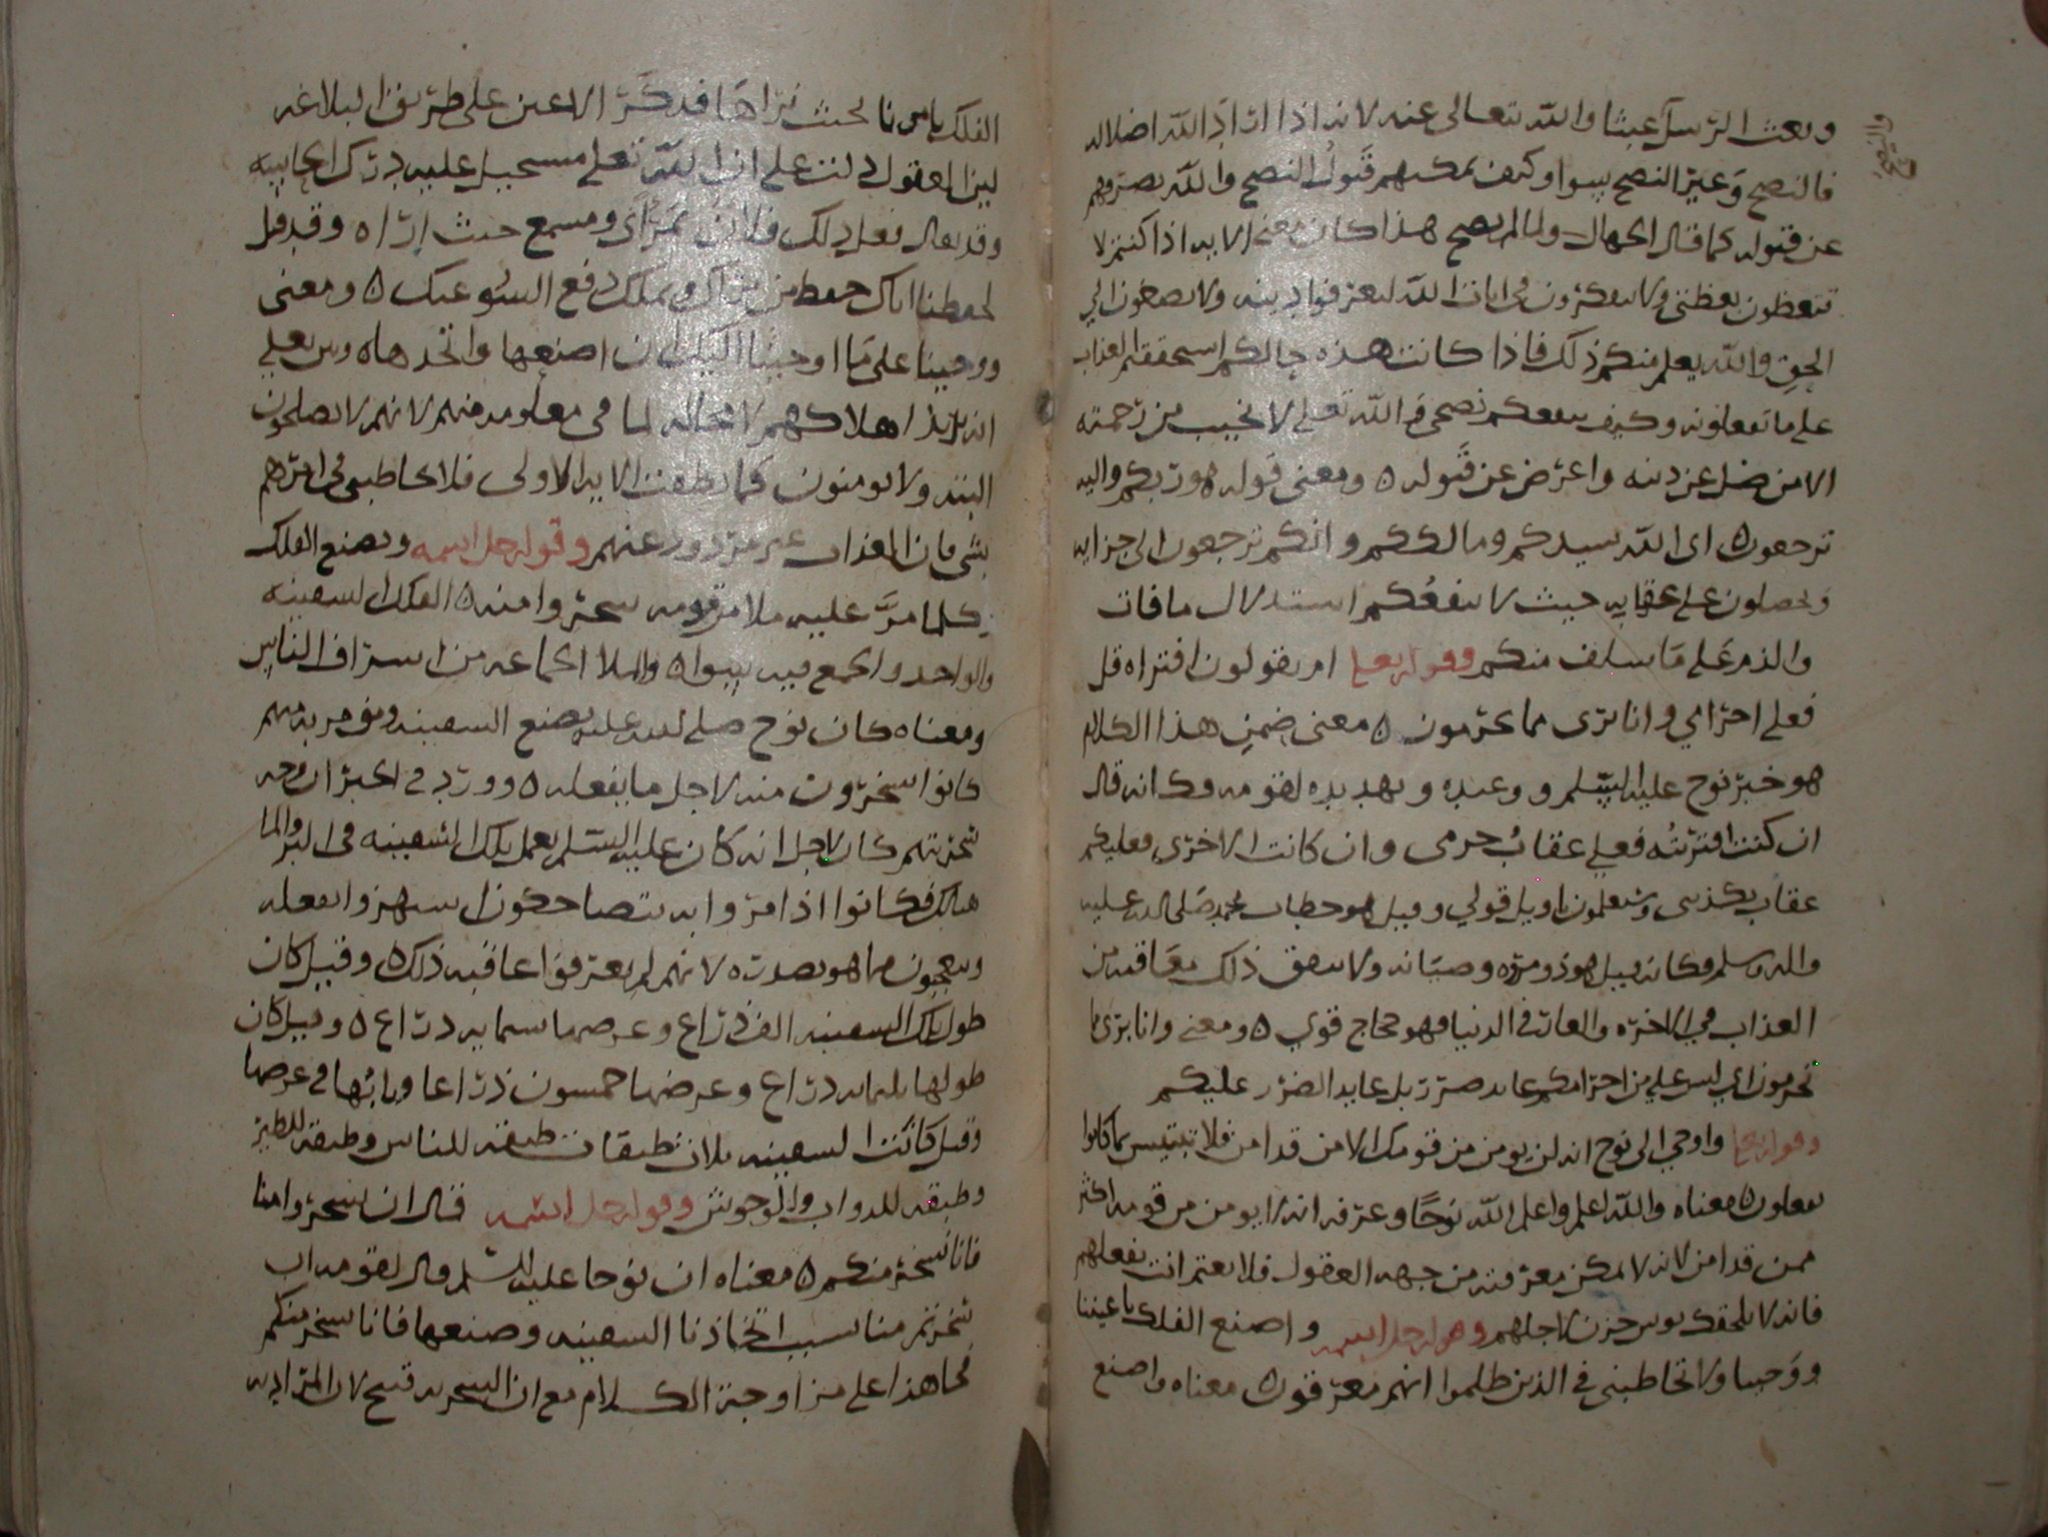 وبعث الرسل عبثا والله تعالى عنه لانه اذا اراد الله اضلاله
فالنصح وغير النصح سوا وكيف يمكنهم قبول النصح والله يصرفهم
عن قبوله كما قال الجهال ولما لم يصح هذا كان معنى الايه اذا كنتم لا
تتعظون بعظتي ولا تتفكرون في ايات الله لتعرفوا دينه ولا تصغون الى
الحق والله يعلم منكم ذلك فاذا كانت هذه حالكم استحققتم العذاب
على ما تفعلونه وكيف ينفعكم نصحي والله تعلى لا يخيب من رحمته
الا من ضل عن دينه واعرض عن قبوله ٥ ومعنى قوله هو ربكم واليه
ترجعون ٥ اى الله سيدكم ومالككم وانكم ترجعون الى جزايه
وتحصلون على عقابه حيث لا ينفعكم استدلال ما فات
والذم على ما سلف منكم وقوله تعلى ام يقولون افتراه قل
فعلي اجرامي وانا برى مما تجرمون ٥ معنى ضمن هذا الكلام
هو خبر نوح عليه السلم ووعيده وتهديده لقومه وكانه قال
ان كنت افتريته فعلي عقاب جرمى وان كانت الاخرى فعليكم
عقاب تكذيبي وستعلمون تاويل قولي وقيل هو خطاب لمحمد صلى الله عليه
واله وسلم وكانه قيل هو ذو مروه وصيانه ولا
العذاب في الاخره والعار في الدنيا فهو حجاج قوي ٥ ومعنى وانا برى مما
تجرمون اي ليس علي من اجرامكم عايد ضرر بل عايد الضرر عليكم
وقوله تعلى واوحي الى نوح انه لن يومن من قومك الا من قد امن فلا تبتيس بما كانوا
يفعلون ٥ معناه والله اعلم واعلم الله نوحًا وعرفه انه لا يومن من قومه اكثر
ممن قد امن لانه لا يمكن معرفته من جهه العقول فلا تغتم انت بفعلهم
فانه لا يلحقك بوس حزن لاجلهم وقوله جل اسمه واصنع الفلك باعيننا
ووحينا ولا تخاطبني في الذين ظلموا انهم مغرقون ٥ معناه واصنع
الفلك بامرنا بحيث نراها فذكر الاعين على طريق البلاغه
لان العقول دلت على ان الله تعلى مستحيل عليه درك الحاسه
وقد يقال فعل ذلك فلان بمراى ومسمع حيث اراه وقد قيل
بحفظنا اياك حفظ من يراك ويملك دفع السوء عنك ٥ ومعنى
ووحينا على ما اوحينا اليك ان اصنعها واتخذها ٥ وبين تعلى
انه يريد اهلاكهم لا محاله لما في معلومه منهم لانهم لا يصلحون
البته ولا يومنون كما نطقت الايه الاولى فلا تخاطبني في امرهم
بشي فان العذاب غير مردود عنهم وقوله جل اسمه ويصنع الفلك
وكلما مر عليه ملا من قومه سخروا منه ٥ الفلك السفينه
والواحد والجمع فيه سوا ٥ والملا الجماعه من اشراف الناس
ومعناه كان نوح صلى الله عليه يصنع السفينه وقومه
كانوا يسخرون منه لاجل ما يفعله ٥ وورد في الخبر ان وجه
سخريتهم كان لاجل انه كان عليه السلم يعمل تلك السفينه في البر ولا ما
هنالك فكانوا اذا مروا به يتضاحكون استهزوا بفعله
ويعجبون مما هو بصدده لانهم لم يعرفوا عاقبه ذلك ٥ وقيل كان
طول تلك السفينه الف ذراع وعرضها ستمايه ذراع ٥ وقيل كان
طولها ثلثمايه ذراع وعرضها خمسون ذراعا وبابها في عرضها
وقيل كانت السفينه ثلاث طبقات طبقه للناس وطبقه للطير
وطبقه للدواب والوحوش وقوله جل اسمه قال ان تسخروا منا
فانا نسخر منكم ٥ معناه ان نوحا عليه السلم قال لقومه ان
تسخرتم منا بسبب اتخاذنا السفينه وصنعها فانا نسخر منكم
هذا على مزاوجة الكلام مع ان السخريه قبيح لان المراد به